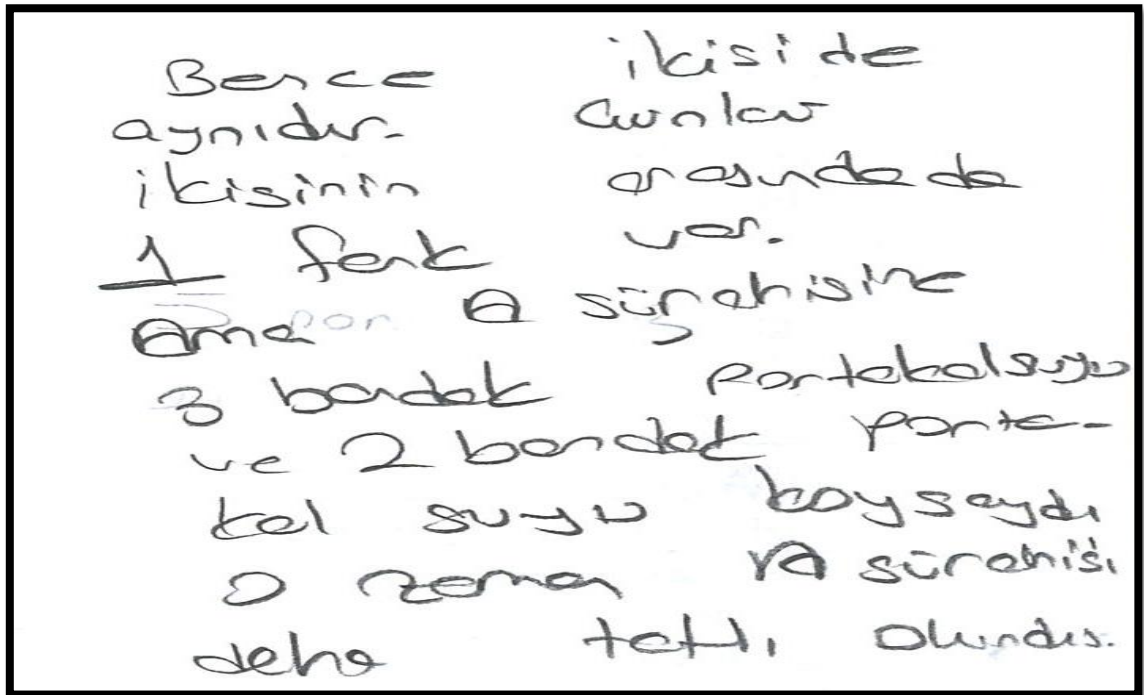 Bence ikiside
aynıdır. Çünkü
ikisinin arasındada
1 fark var.
Ama A sürahisine
3 bardak Portakalsuyu
ve 2 bardak porta-
kal suyu koysaydı
o zaman A sürahisi
daha tatlı olurdu.